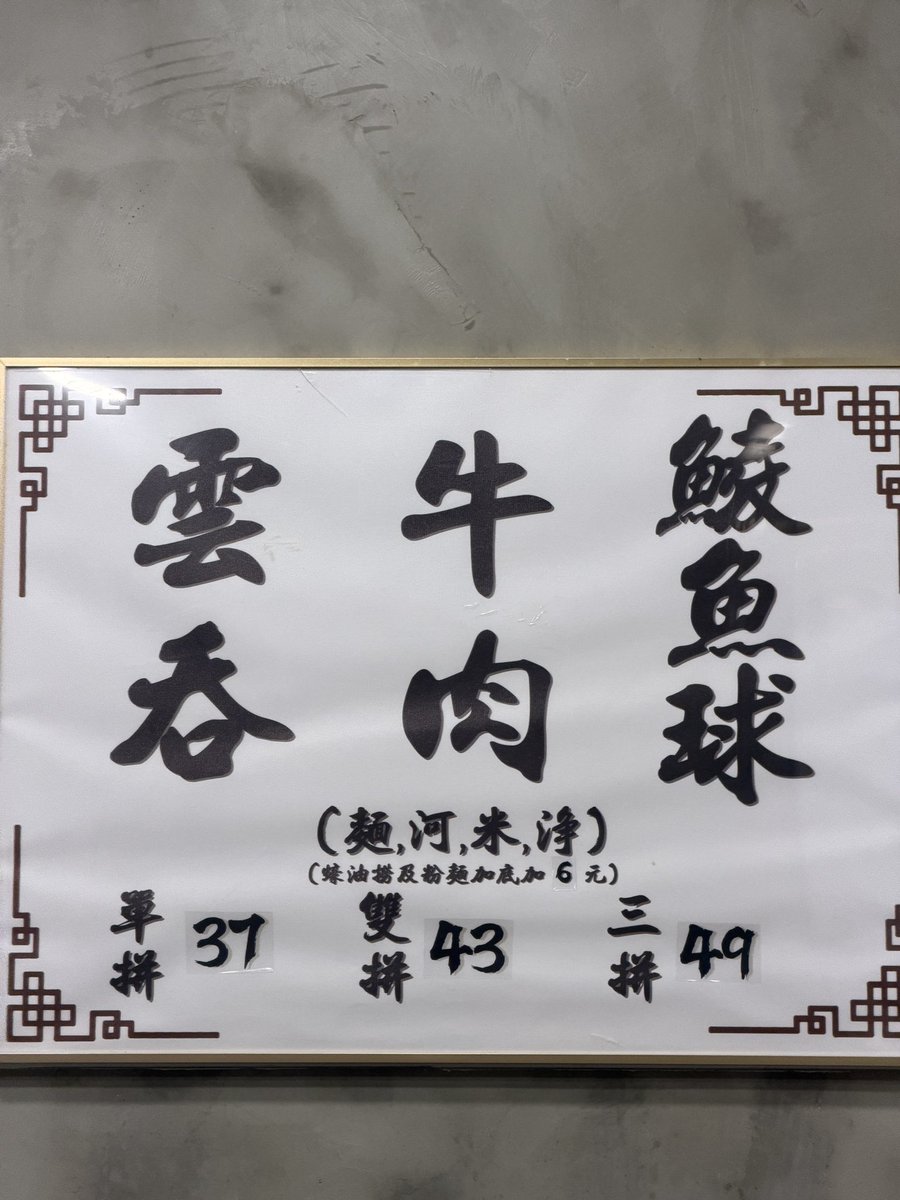 雲吞
牛肉
鯪魚球
(麵,河,米,淨)
(蠔油撈及粉麵加底加 6 元)
單拼 37
雙拼 43
三拼 49